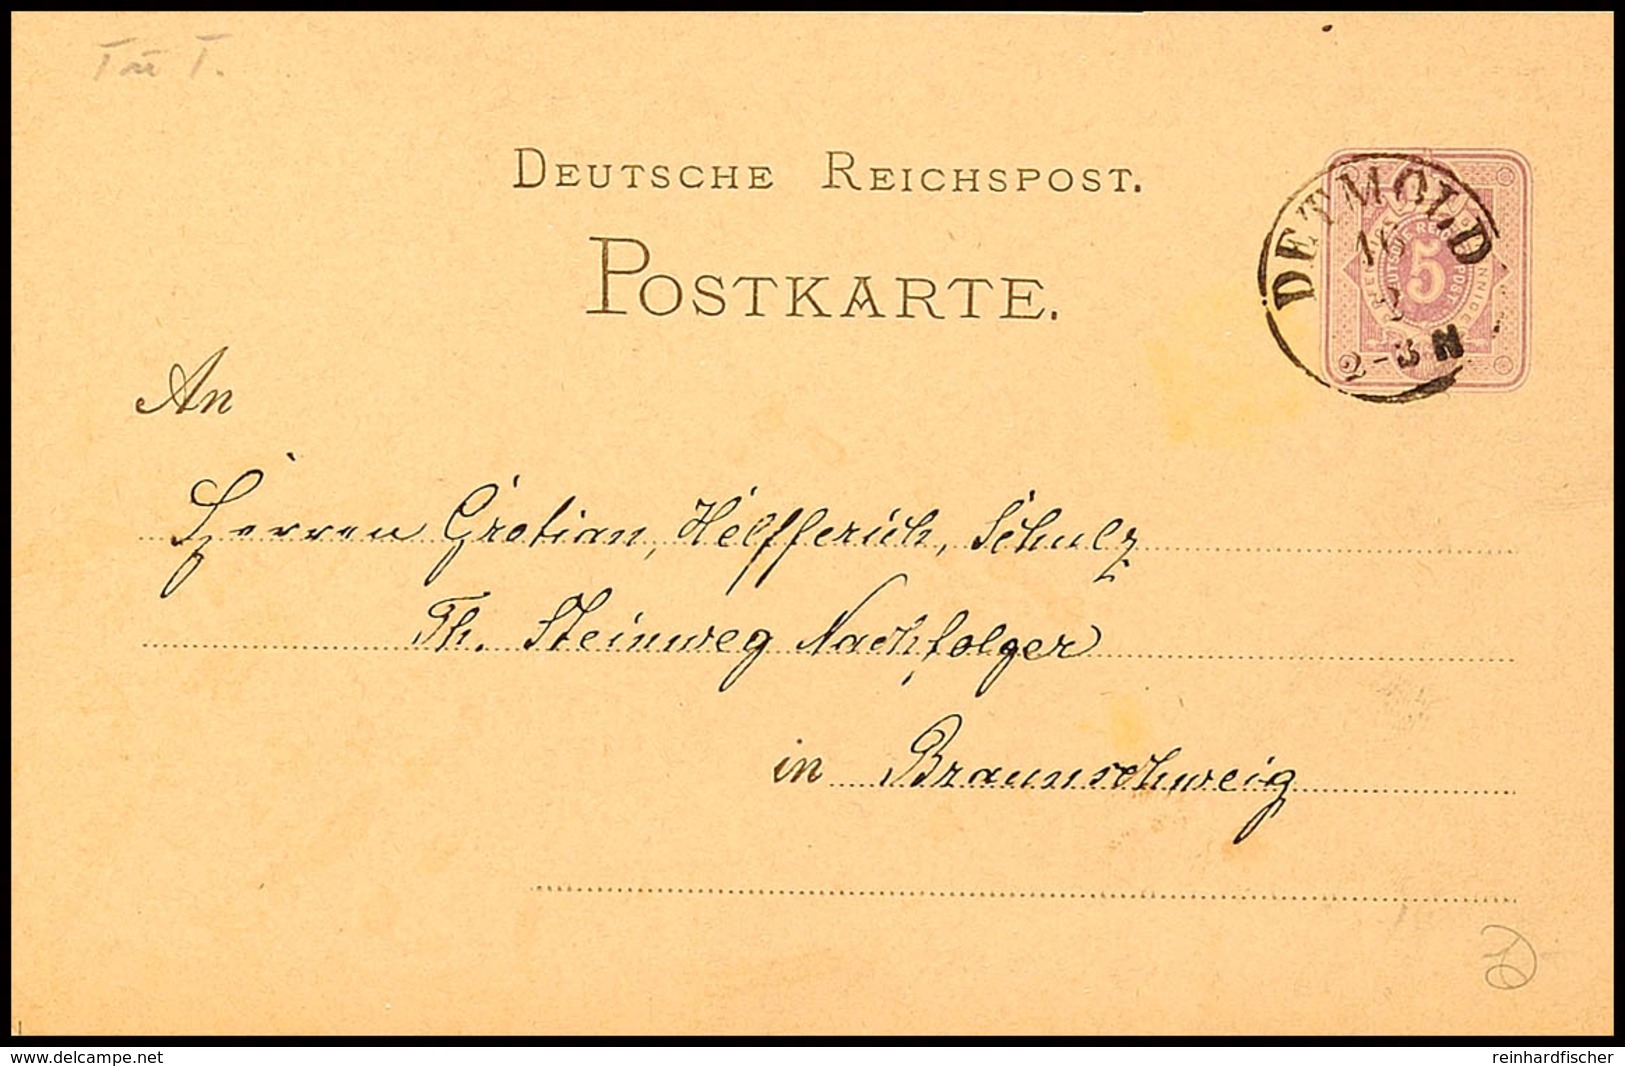 DEUTSCHE REICHSPOST.
POSTKARTE.
DETMOLD
16
2-3 N
5
An
Herren Grotian, Helfferich, Schulz
Th. Steinweg Nachfolger
in Braunschweig
www.delcampe.net
reinhardfischer